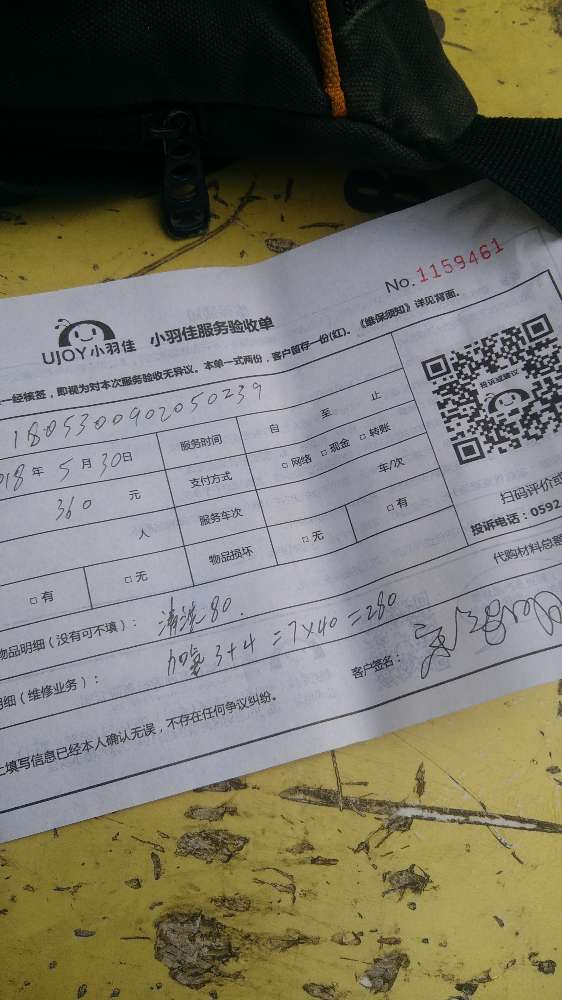 No. 1159461
UJOY小羽佳 小羽佳服务验收单
一经核签，即视为对本次服务验收无异议。本单一式两份，客户留存一份(红)。《维保须知》详见背面。
1805300902050239
018年5月30日 服务时间 自 至 止
360元 支付方式 □网络 □现金 □转账
人 服务车次 车/次
□有 □无 物品损坏 □无 □有
投诉或建议
扫码评价或
投诉电话：0592
代购材料总额
物品明细（没有可不填）： 清洗80.
明细（维修业务）： 加氟3+4=7×40=280
客户签名：
上填写信息已经本人确认无误，不存在任何争议纠纷。